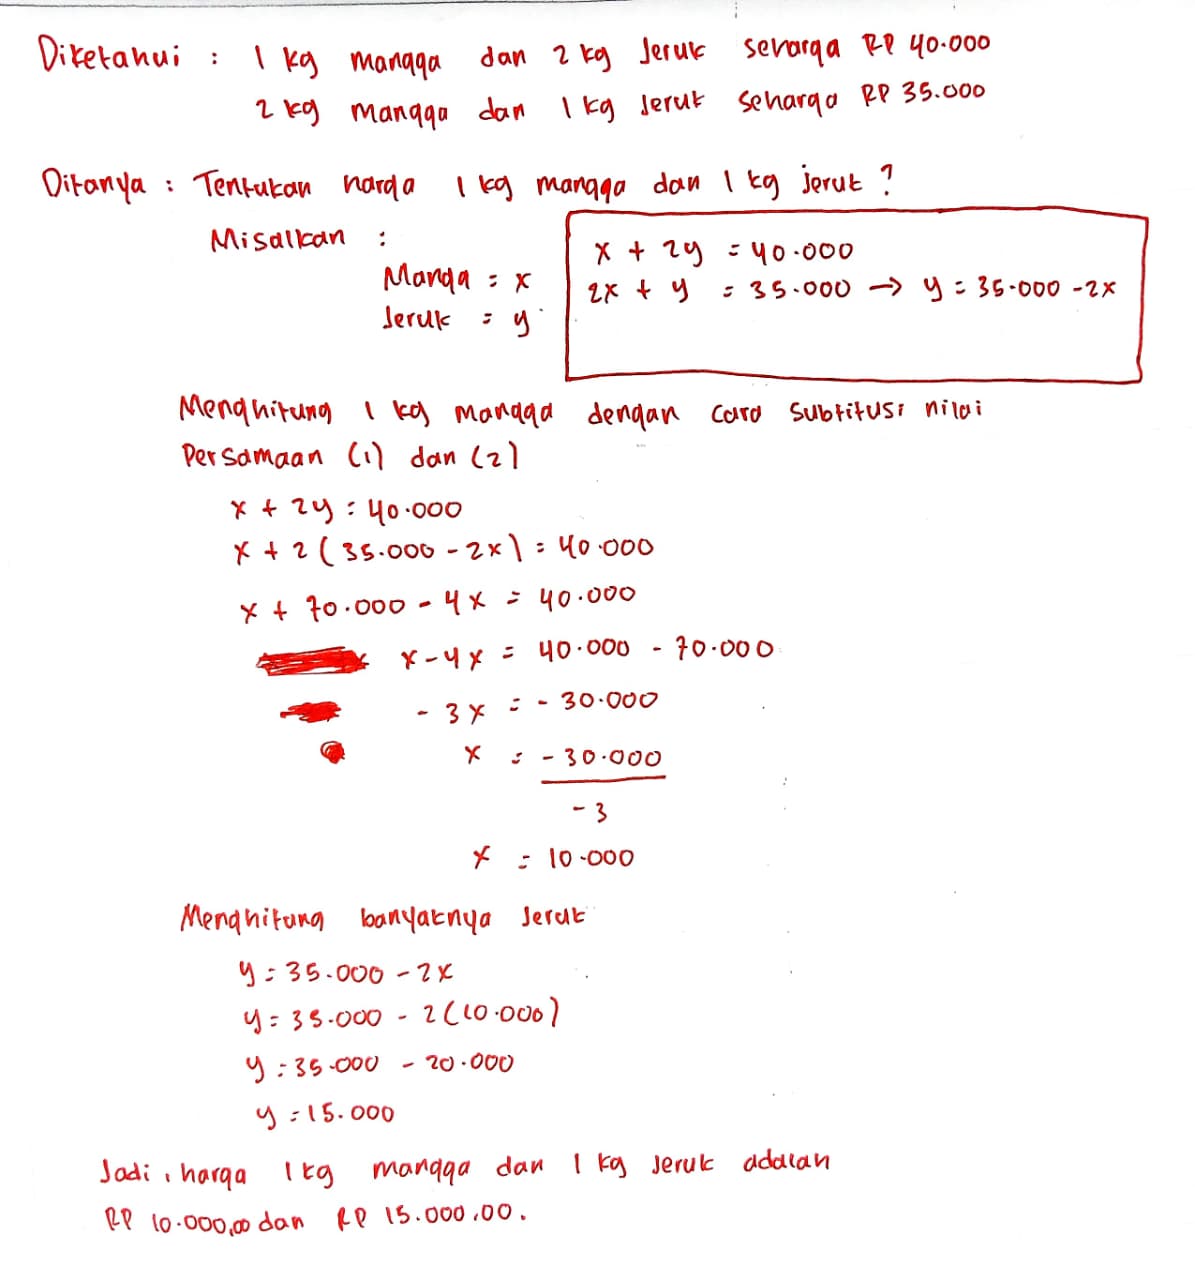 Diketahui : 1 kg mangga dan 2 kg Jeruk seharga RP 40.000
2 kg mangga dan 1 kg Jeruk seharga RP 35.000
Ditanya : Tentukan harga 1 kg mangga dan 1 kg jeruk ?
Misalkan :
Manga = x
Jeruk = y
x + 2y = 40.000
2x + y = 35.000 → y = 35.000 - 2x
Menghitung 1 kg mangga dengan cara Subtitusi nilai
Persamaan (1) dan (2)
x + 2y = 40.000
x + 2 ( 35.000 - 2x ) = 40.000
x + 70.000 - 4x = 40.000
x - 4x = 40.000 - 70.000
- 3x = - 30.000
x = - 30.000
- 3
x = 10.000
Menghitung banyaknya Jeruk
y = 35.000 - 2x
y = 35.000 - 2 (10.000)
y = 35.000 - 20.000
y = 15.000
Jadi, harga 1 kg mangga dan 1 kg Jeruk adalah
RP 10.000,00 dan RP 15.000,00.